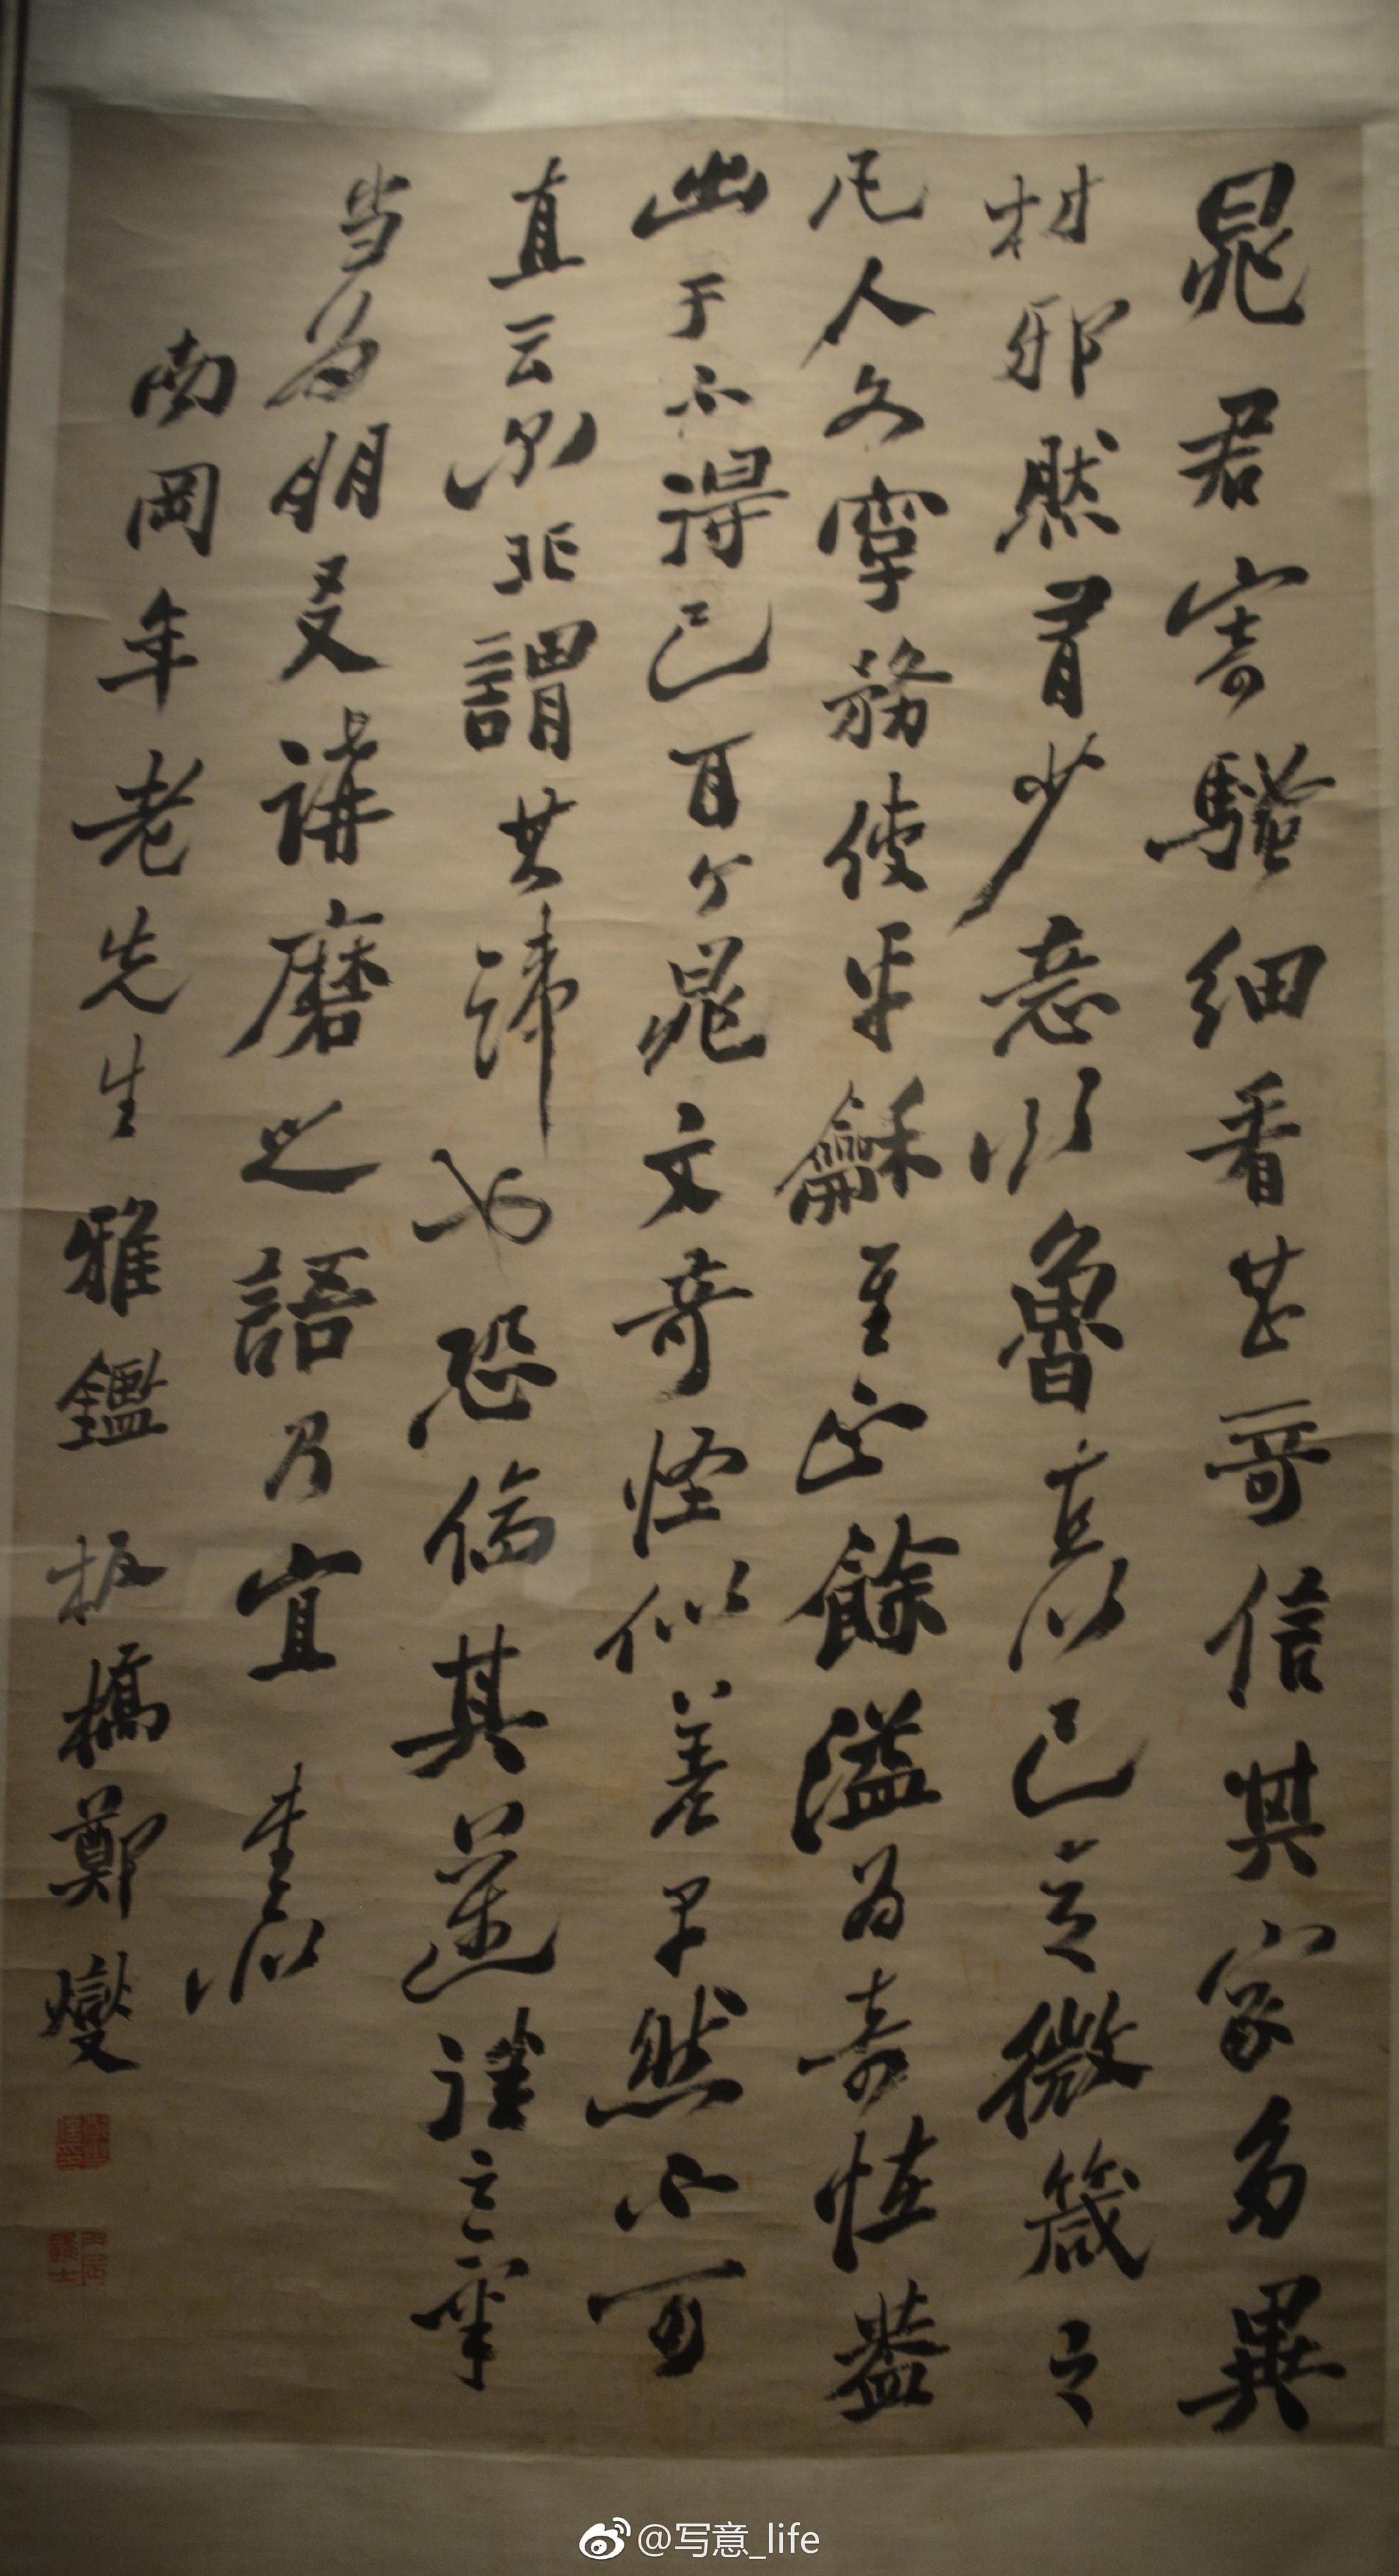 晁君寄騷細看甚奇信其家多異
材邪然有少意以魯直以己意微箴之
凡人文字務使平龢至足餘溢為奇怪蓋
出于不得已耳今晁文奇怪似差早然不可
直云爾非謂其諱也恐傷其邁往之氣
当為朋友講磨之語乃宜 書似
南岡年老先生雅鑑 板橋鄭燮
@写意_life